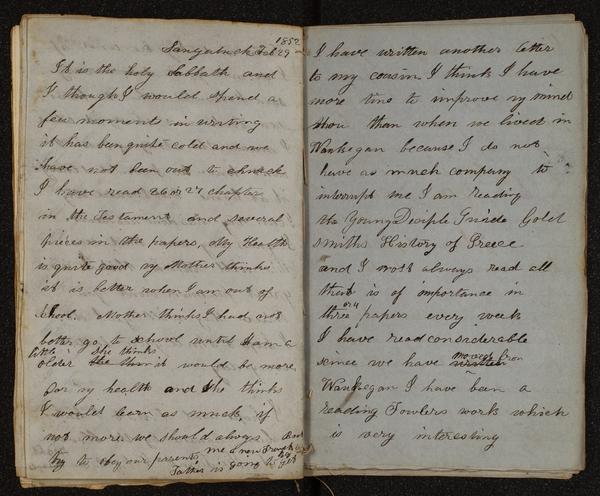 1852
Saugatuck Feb 29
It is the holy Sabbath and
I thought I would spend a
few moments in writing
it has been quite cold and we
have not been out to church
I have read 26 or 27 chapter
in the Testament and several
pieces in the papers, My Health
is quite good my Mother thinks
it is better when I am out of
School. Mother thinks I had not
better go to school until I am a
little she thinks
older the think it would be more
for my health and She thinks
I would learn as much, if
not more. we should always
try to obey our parents me a new
Father is going to get
I have written another letter
to my cousin I think I have
more time to improve my mind
than when we lived in
Waukegan because I do not
have as much company to
interrupt me I am reading
the Young Deciple Guide Gold
smiths History of Greece
and I most always read all
that is of importance in
or 4
three papers every week
I have read considerable
moved from
since we have written
Waukegan I have been a
reading Fowlers work which
is very interesting